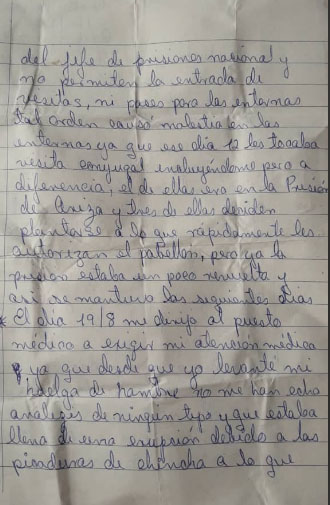 del jefe de prisiones nacional y
no permiten la entrada de
vesitas, ni pases para las internas
tal orden causó malestia en las
internas ya que ese dia 12 les tocaba
vesita conyugal incluyéndome pero a
diferencia, el de ellas era en la Prisión
de Ariza y tres de ellas deciden
plantarse a lo que rápidamente les
autorizan el pabellon, pero ya la
prision estaba un poco revuelta y
asi se mantuvo los siguientes dias
* El dia 19/8 me dirijo al puesto
médico a exegir mi atención médica
ya que desde que yo levanté mi
huelga de hambre no me han echo
análisis de ningun tipo y que estaba
llena de una erupción debido a las
picaduras de chincha a lo que